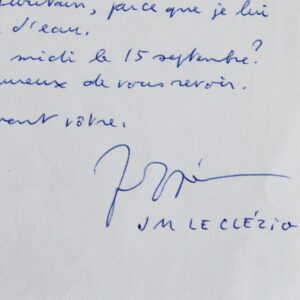 parce que je lui
d'eau.
midi le 15 septembre?
ureux de vous revoir.
ment vôtre.
JM LE CLÉZIO